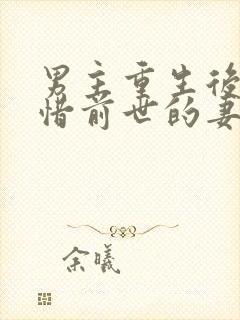 男主重生後
惜前世的妻
余曦